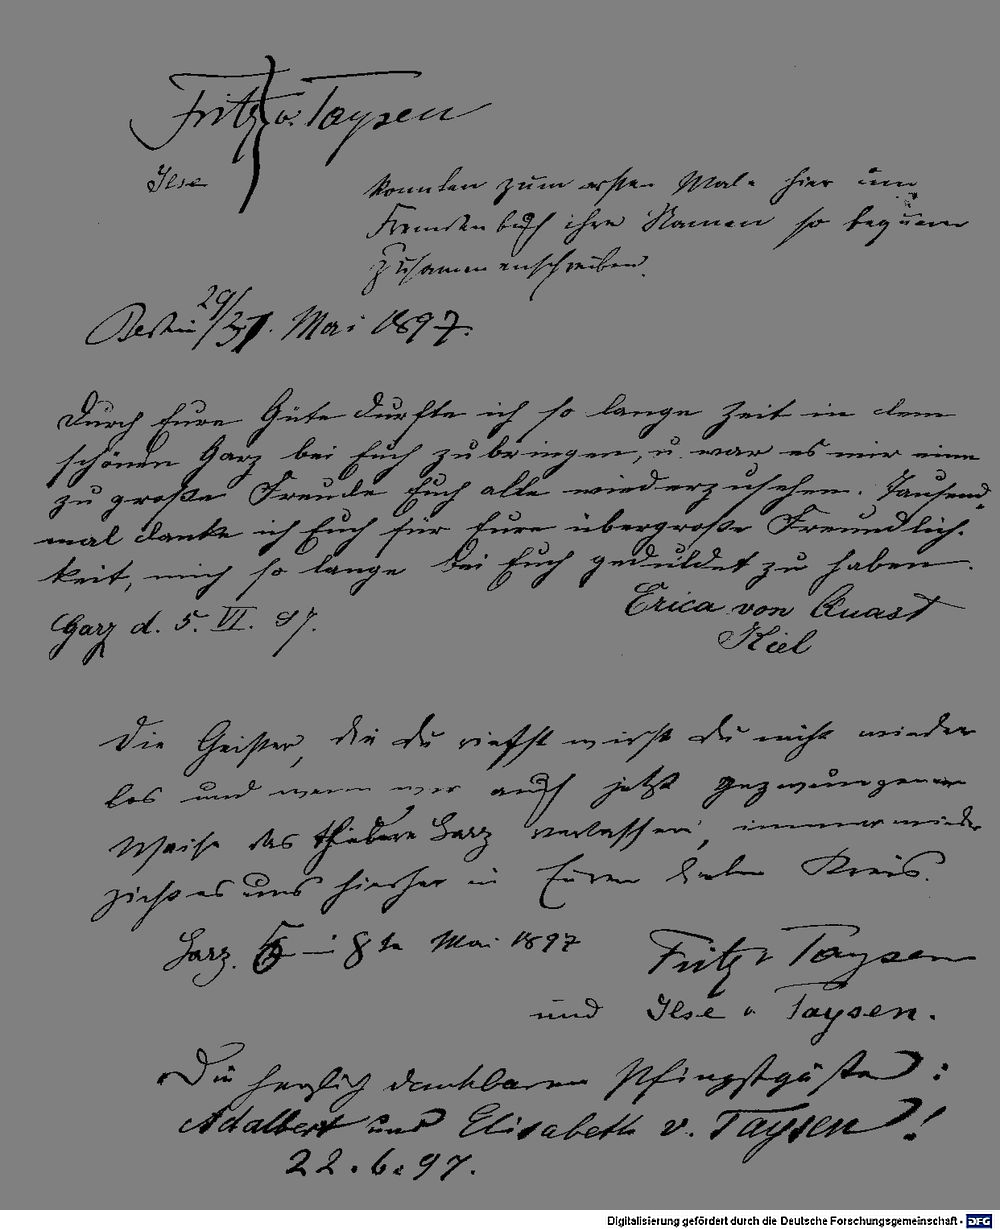 Fritz v. Taysen
Ilse
konnten zum ersten Male hier im
Fremdenbuch ihre Namen so bequem
zusammenschreiben.
Berlin 29/31. Mai 1897.
Durch Eure Güte durfte ich so lange Zeit in dem
schönen Garz bei Euch zubringen, u. war es mir eine
zu große Freude Euch alle wiederzusehen. Tausend-
mal danke ich Euch für Eure übergroße Freundlich-
keit, mich so lange bei Euch geduldet zu haben.
Erica von Quast
Garz d. 5. VI. 97.
Kiel
Die Geister, die du riefst wirst du nicht wieder
los und wenn wir auch jetzt gezwungener
Weise das Garz verlassen, immer wieder
zieht es uns hierher in Euren lieben Kreis.
Garz. 8te Mai 1897
Fritz v Taysen
und Ilse v Taysen.
Die herzlich dankbaren Pfingstgäste:
Adalbert und Elisabeth v. Taysen!
22.6.97.
Digitalisierung gefördert durch die Deutsche Forschungsgemeinschaft - DFG